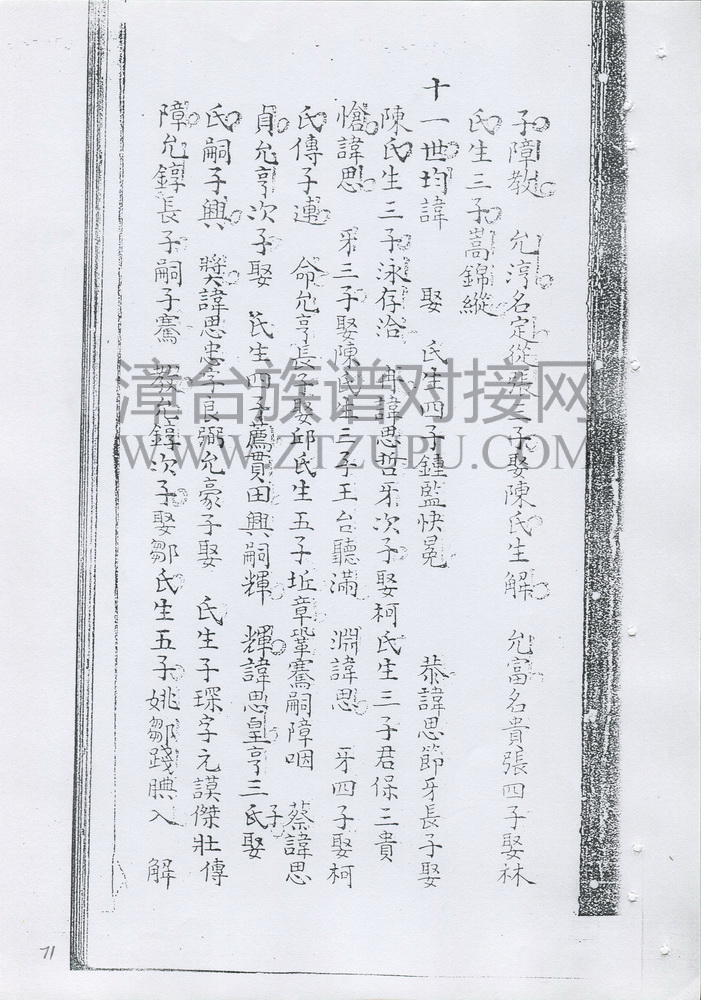 子障教 允淳名定從張三子娶陳氏生解 允富名貴張四子娶林
氏生三子嵩錦縱
十一世均諱 娶 氏生四子鍾監快冕 恭諱思節牙長子娶
陳氏生三子泳存洽 諱思哲牙次子娶柯氏生三子君保三貴
愴諱思 牙三子娶陳氏生三子王台聽滿 淵諱思 牙四子娶柯
氏傳子連 命允亨長子娶邱氏生五子坵章鞏騫嗣障咽 蔡諱思
貞允亨次子娶 氏生四子薦貫田興嗣輝 輝諱思皇亨三子娶氏
氏嗣子興 獎諱思忠字良弼允豪子娶 氏生子琛字元謨傑壯傳
障允錞長子嗣子騫 教允錞次子娶鄒氏生五子姚鄒踐腆入 解
漳台族谱对接网
WWW.ZTZUPU.COM
71